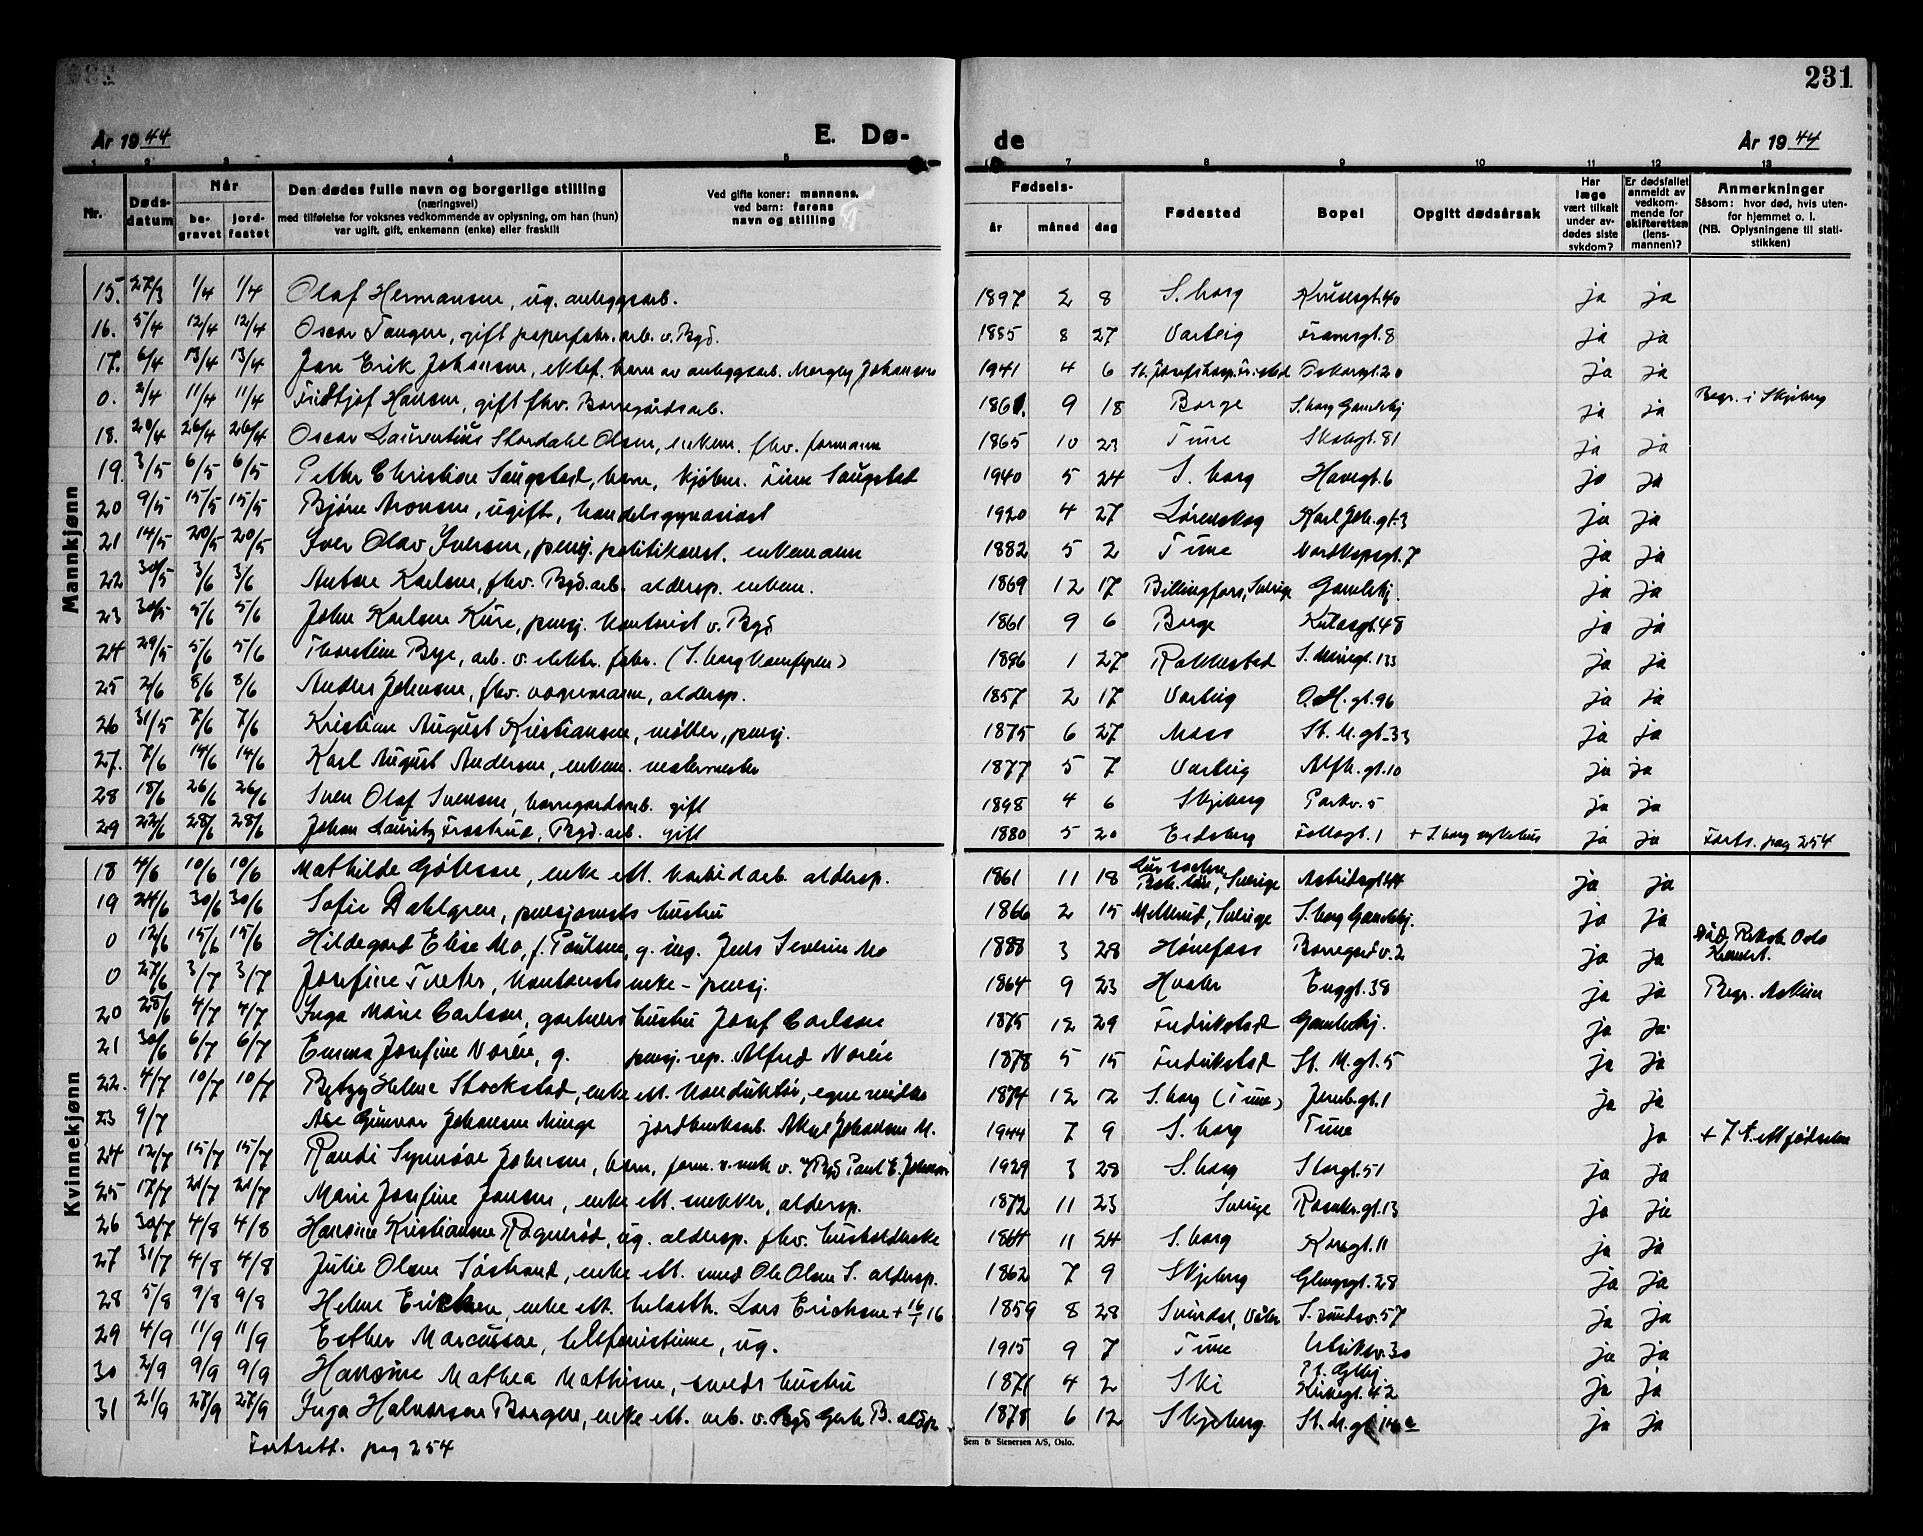 231
År 1944 E. Dø- de År 1944
1 2 3 4 5 6 7 8 9 10 11 12 13
Nr. Døds-datum Når be-gravet jord-festet Den dødes fulle navn og borgerlige stilling (næringsvei) med tilføielse for voksnes vedkommende av oplysning, om han (hun) var ugift, gift, enkemann (enke) eller fraskilt Ved gifte koner: mannens, ved barn: farens navn og stilling Fødsels- år måned dag Fødested Bopel Opgitt dødsårsak Har læge vært tilkalt under av-dødes siste sykdom? Er dødsfallet anmeldt av vedkom-mende for skifteretten (lens-mannen)? Anmerkninger Såsom: hvor død, hvis uten-for hjemmet o. l. (NB. Oplysningene til stati-stikken)
Mannkjønn
15. 27/3 1/4 1/4 Olaf Hermansen, ug. anleggsarb. 1897 2 8 S.borg Krusesgt. 40 ja ja
16. 5/4 12/4 12/4 Oscar Tangen, gift papirfabr.arb. v. Bgd. 1885 8 27 Varteig Framsgt. 8 ja ja
17. 6/4 13/4 13/4 Jan Erik Johansen, ektef. barn av anleggsarb. Johansen 1941 4 6 St. Josefs hosp. Fr.stad Oskarsgt. 20 ja ja
0. 2/4 11/4 11/4 Fridtjof Hansen, gift fhv. Borregårdsarb. 1861. 9 18 Borge S.borg Gamlehj ja ja Begr. i Skjeberg
18. 20/4 26/4 26/4 Oscar Laurentius Stordahl Olsen, enkem. fhv. formann 1865 10 23 Tune Skolegt. 81 ja ja
19. 3/5 6/5 6/5 Petter Christian Saugstad, barn, kjøbm. Finn Saugstad 1940 5 24 S.borg Havegt. 6 ja ja
20 9/5 15/5 15/5 Bjørn Aronsen, ugift, handelsgymnasiast 1920 4 27 Lørenskog Karl Joh. gt. 3 ja ja
21 14/5 20/5 20/5 Iver Olav Iversen, pensj. politikonst. enkemann 1882 5 2 Tune Nordkapsgt. 7 ja ja
22 30/5 3/6 3/6 Anton Karlsen, fhv. Bgd.arb. aldersp. enkem. 1869 12 17 Billingsfors, Sverige Gamlehj. ja ja
23 30/5 5/6 5/6 John Karlsen Kure, pensj. kontorist v. Bgd 1861 9 6 Borge Kulåsgt. 48 ja ja
24 29/5 5/6 5/6 Thorstein Bye, arb. v. elektr. fabr. (S.borg komfyren) 1896 1 27 Rakkestad S. Mariegt. 133 ja ja
25 2/6 8/6 8/6 Anders Johnsen, fhv. vognmann, aldersp. 1857 2 17 Varteig O.H. gt. 96 ja ja
26 31/5 7/6 7/6 Kristian August Kristiansen, møller, pensj. 1875 6 27 Moss St. M. gt. 33 ja ja
27. 7/6 14/6 14/6 Karl August Andersen, enkem. malermester 1877 5 7 Varteig Alfh. gt. 10 ja ja
28 18/6 26/6 26/6 Sven Olaf Svensen, borregaardsarb. gift 1898 4 6 Skjeberg Parkv. 5 ja ja
29 22/6 28/6 28/6 Johan Lauritz Frøstrud, Bgd. arb. gift 1880 5 20 Eidsberg Follogt. 1 + S.borg sykehus ja ja Forts. pag 254
Kvinnekjønn
18 4/6 10/6 10/6 Mathilde Gøtesen, enke ett. karbidarb. aldersp. 1861 11 18 Sverige Astridsgt. 44 ja ja
19 24/6 30/6 30/6 Sofie Dahlgren, pensjonists hustru 1866 2 15 Mellerud, Sverige S.borg Gamlehj. ja ja
0 12/6 15/6 15/6 Hildegard Elise Mo, f. Paulsen, g. ing. Jens Severin Mo 1888 3 28 Hønefoss Borregård v. 2 ja ja Død Riksh. Oslo Kremert.
0 27/6 3/7 3/7 Josefine Tveter, kontorists enke - pensj. 1864 9 23 Hvaler Enggt. 38 ja ja Begr. Askim
20 28/6 4/7 4/7 Inga Marie Carlsen, gartners hustru Josef Carlsen 1875 12 29 Fredrikstad Gamlehj. ja ja
21 30/6 6/7 6/7 Emma Josefine Norén, g. pensj. rep. Alfred Norén 1878 5 15 Fredrikstad St. M. gt. 5 ja ja
22. 4/7 10/7 10/7 Betzy Helene Stockstad, enke ett. konduktør, egne midler 1874 12 12 S.borg (Tune) Jernb.gt. 1 ja ja
23 9/7 Åse Gunvor Johansen Minge jordbruksarb. Aksel Johansen M. 1944 7 9 S.borg Tune ja + 7 t. ett fødselen
24 12/7 15/7 15/7 Randi Synnøve Johnsen, barn, form. v. mek v. Bgd Paul E. Johnsen 1929 3 28 S.borg Storgt. 51 ja ja
25 17/7 21/7 21/7 Marie Josefine Jansen, enke ett. snekker, aldersp. 1872 11 23 Sverige Rosenkr. gt. 13 ja ja
26 30/7 4/8 4/8 Hansine Kristiansen Ragnerød, ug. aldersp. fhv. husholderske 1864 11 24 S.borg Korsgt. 11 ja ja
27 31/7 4/8 4/8 Julie Olsen Søstrand, enke ett. smed Ole Olsen S. aldersp. 1862 7 9 Skjeberg Glengsgt. 28 ja ja
28 5/8 9/8 9/8 Helene Ericksen, enke ett. Lars Ericksen + 16/7 16 1859 8 28 Svindal, Våler S. sundsv. 57 ja ja
29 4/9 11/9 11/9 Esther Marcussen, telefonistinne, ug. 1915 9 7 Tune Ulriksv. 30 ja ja
30 2/9 9/9 9/9 Hansine Mathea Mathisen, smeds hustru 1871 4 2 Ski Krusegt. 42 ja ja
31 21/9 27/9 27/9 Inga Halvorsen Borgen, enke ett. arb. v. Bgd Gerh. B. aldsp. 1878 6 12 Skjeberg St. M. gt. ja ja
Fortsett. pag 254
Sem & Stenersen A/S, Oslo.